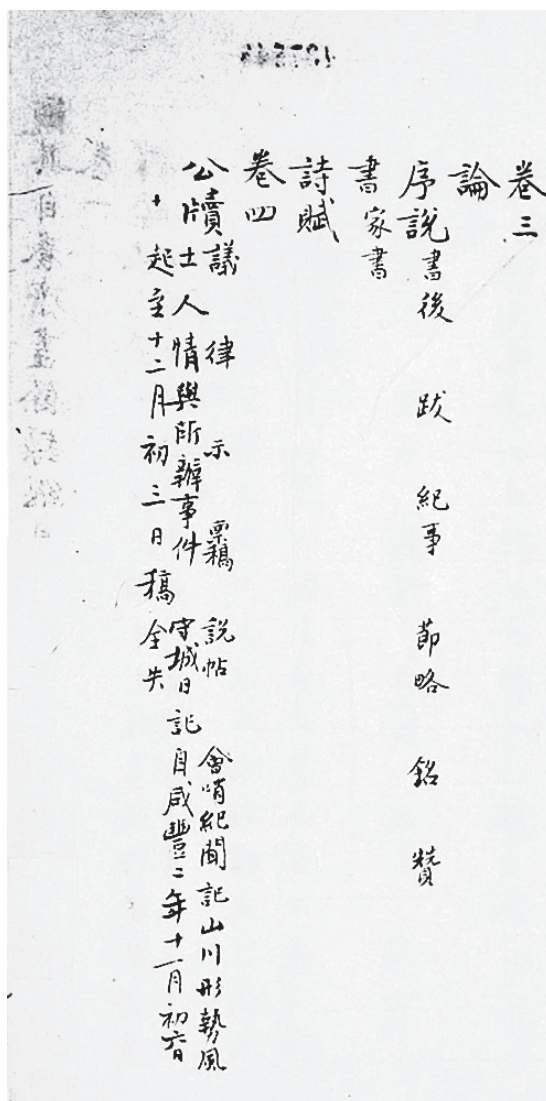 卷三
論
序說書後 跋 紀事 節略 銘 贊
書家書
詩賦
卷四
公牘議 律 示 稟稿 說帖 會哨紀聞記山川形勢風
土人情與所辦事件 守城日記自咸豐二年十一月初六日
起至十二月初三日稿全失